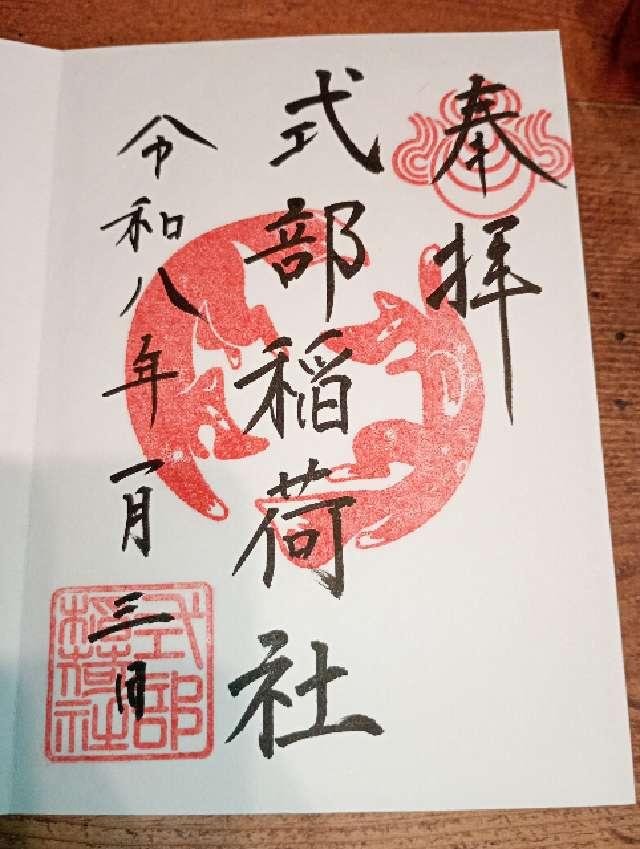 奉拝
式部稲荷社
令和八年一月三日
式部
稲荷社